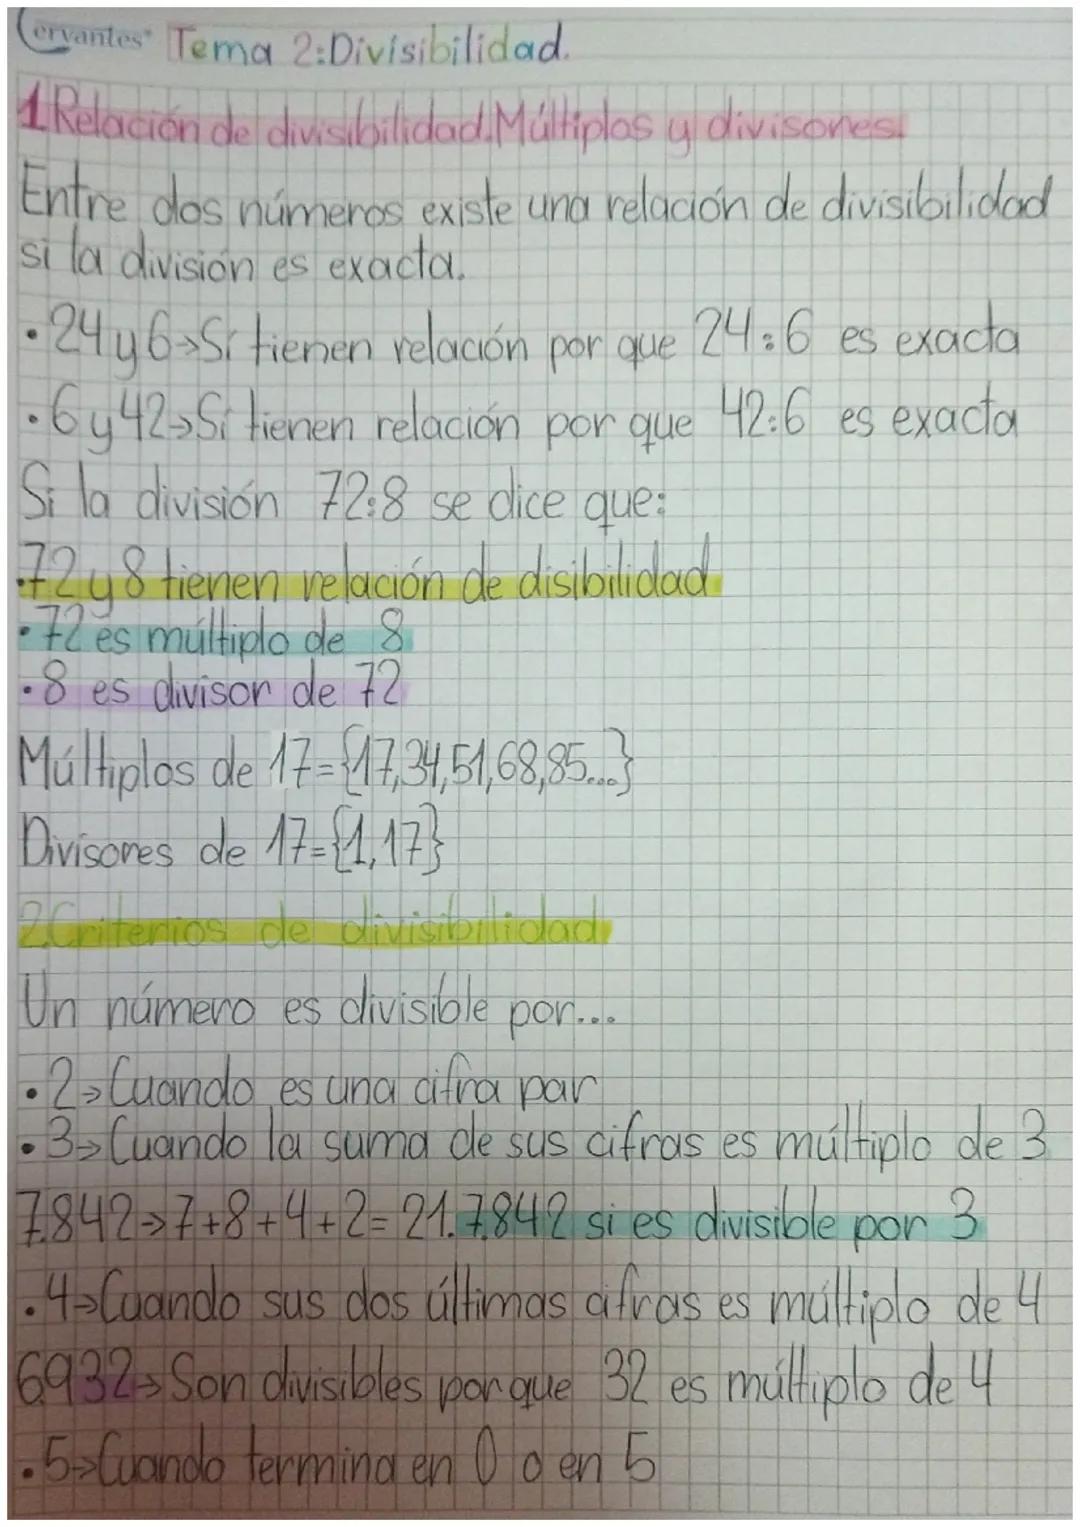 Cervantes® Tema 2:Divisibilidad.
1.Relación de divisibilidad.Múltiplos y divisores.
Entre dos números existe una relación de divisibilidad
si la división es exacta.
·24y6→Sí tienen relación por que 24:6 es exacta
·6y42→Sí tienen relación por que 42:6 es exacta
Si la división 72:8 se dice que:
·72y8 tienen relación de disibilidad
·72 es múltiplo de 8
·8 es divisor de 72
Múltiplos de 17={17,34,51,68,85...}
Divisores de 17={1,17}
2.Criterios de divisibilidad
Un número es divisible por...
·2→Cuando es una cifra par
·3→Cuando la suma de sus cifras es múltiplo de 3
7.842→7+8+4+2=21.7.842 si es divisible por 3
·4→Cuando sus dos últimas cifras es múltiplo de 4
6932→Son divisibles porque 32 es múltiplo de 4
·5→Cuando termina en 0 o en 5